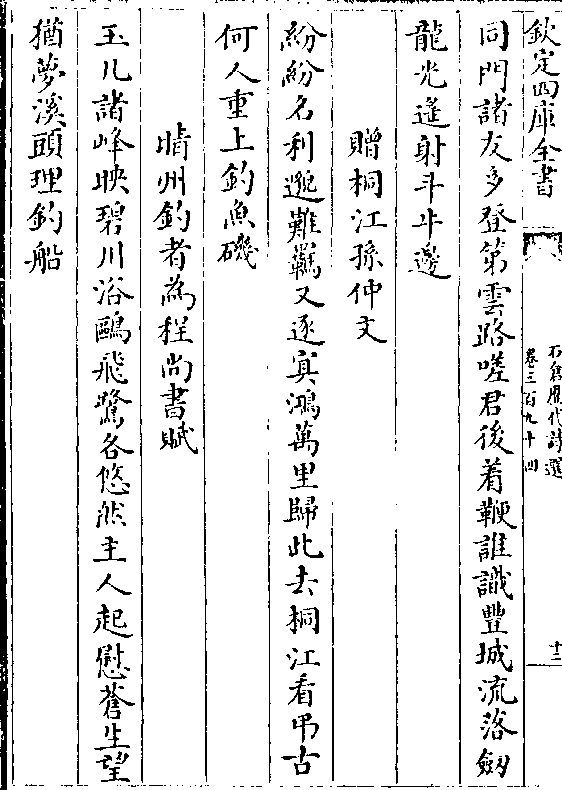 欽定四庫全書
石倉歷代詩選
卷三百九十四
十二
同門諸友多登第雲路嗟君後着鞭誰識豐城流落劔
龍光遥射斗牛邊
贈桐江孫仲文
紛紛名利邈難羈又逐冥鴻萬里歸此去桐江看弔古
何人重上釣魚磯
晴州釣者為程尚書賦
玉几諸峰映碧川浴鷗飛鷺各悠然主人起慰蒼生望
猶夢溪頭理釣船